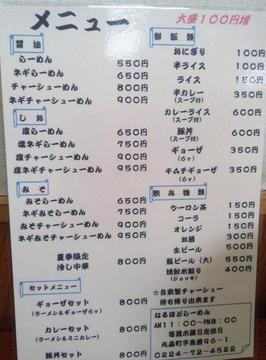 メニュー
大盛100円増
醤油
らーめん 550円
ネギらーめん 650円
チャーシューめん 800円
ネギチャーシューめん 900円
しお
塩らーめん 650円
塩ネギらーめん 750円
塩チャーシューめん 900円
塩ネギチャーシューめん 950円
みそ
みそらーめん 650円
ネギみそらーめん 750円
みそチャーシューめん 900円
ネギみそチャーシューめん 950円
夏季限定
冷し中華 800円
セットメニュー
ギョーザセット 800円
(ラーメン&ギョーザ6ヶ)
カレーセット 800円
(ラーメン&ミニカレー)
豚丼セット 800円
御飯類
おにぎり 100円
半ライス 100円
ライス
半カレー 350円
(スープ付)
カレーライス 600円
(スープ付)
豚丼 600円
(スープ付)
ギョーザ 350円
(6ヶ)
キムチギョーザ 350円
(6ヶ)
飲み物類
ウーロン茶 150円
コーラ 150円
オレンジ 150円
お酒 300円
生ビール 500円
瓶ビール(大) 550円
焼酎水割り 400円
☆自家製チャーシュー
持ち帰り出来ます
なるほどらーめん
AM11:00~PM8:00
毎週木曜日定休日
0224-72-4522